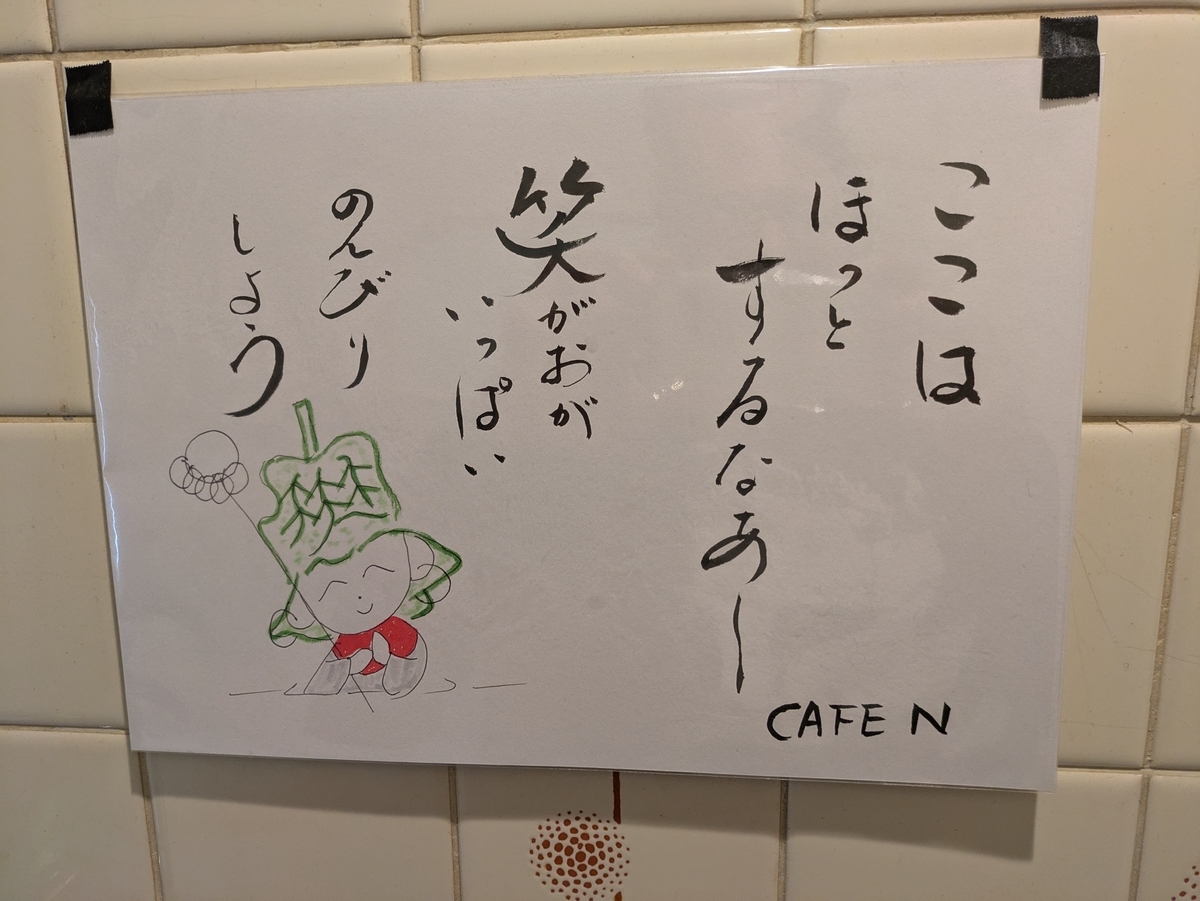 ここは
ほっと
するなあー
笑がおが
いっぱい
のんびり
しよう
CAFE N